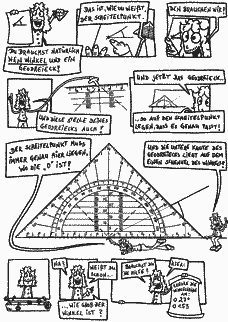 DAS IST, WIE DU WEIßT,
DER SCHEITELPUNKT.
DEN BRAUCHEN WIR!
DU BRAUCHST NATÜRLICH
'NEN WINKEL UND EIN
GEODREIECK!
UND JETZT DAS GEODREIECK
UND DIESE STELLE DEINES
GEODREIECKS AUCH!
...SO AUF DEN SCHEITELPUNKT
LEGEN, DASS ES GENAU PASST!
DER SCHEITELPUNKT MUSS
IMMER GENAU HIER LIEGEN,
WO DIE „0" IST!
UND DIE UNTERE KANTE DES
GEODREIECKS LIEGT AUF DEM
EINEN SCHENKEL DES WINKELS!
NA?
WEIßT DU
SCHON...
...WIE GROß DER
WINKEL IST?
BRAUCHST DU
'NE HILFE?